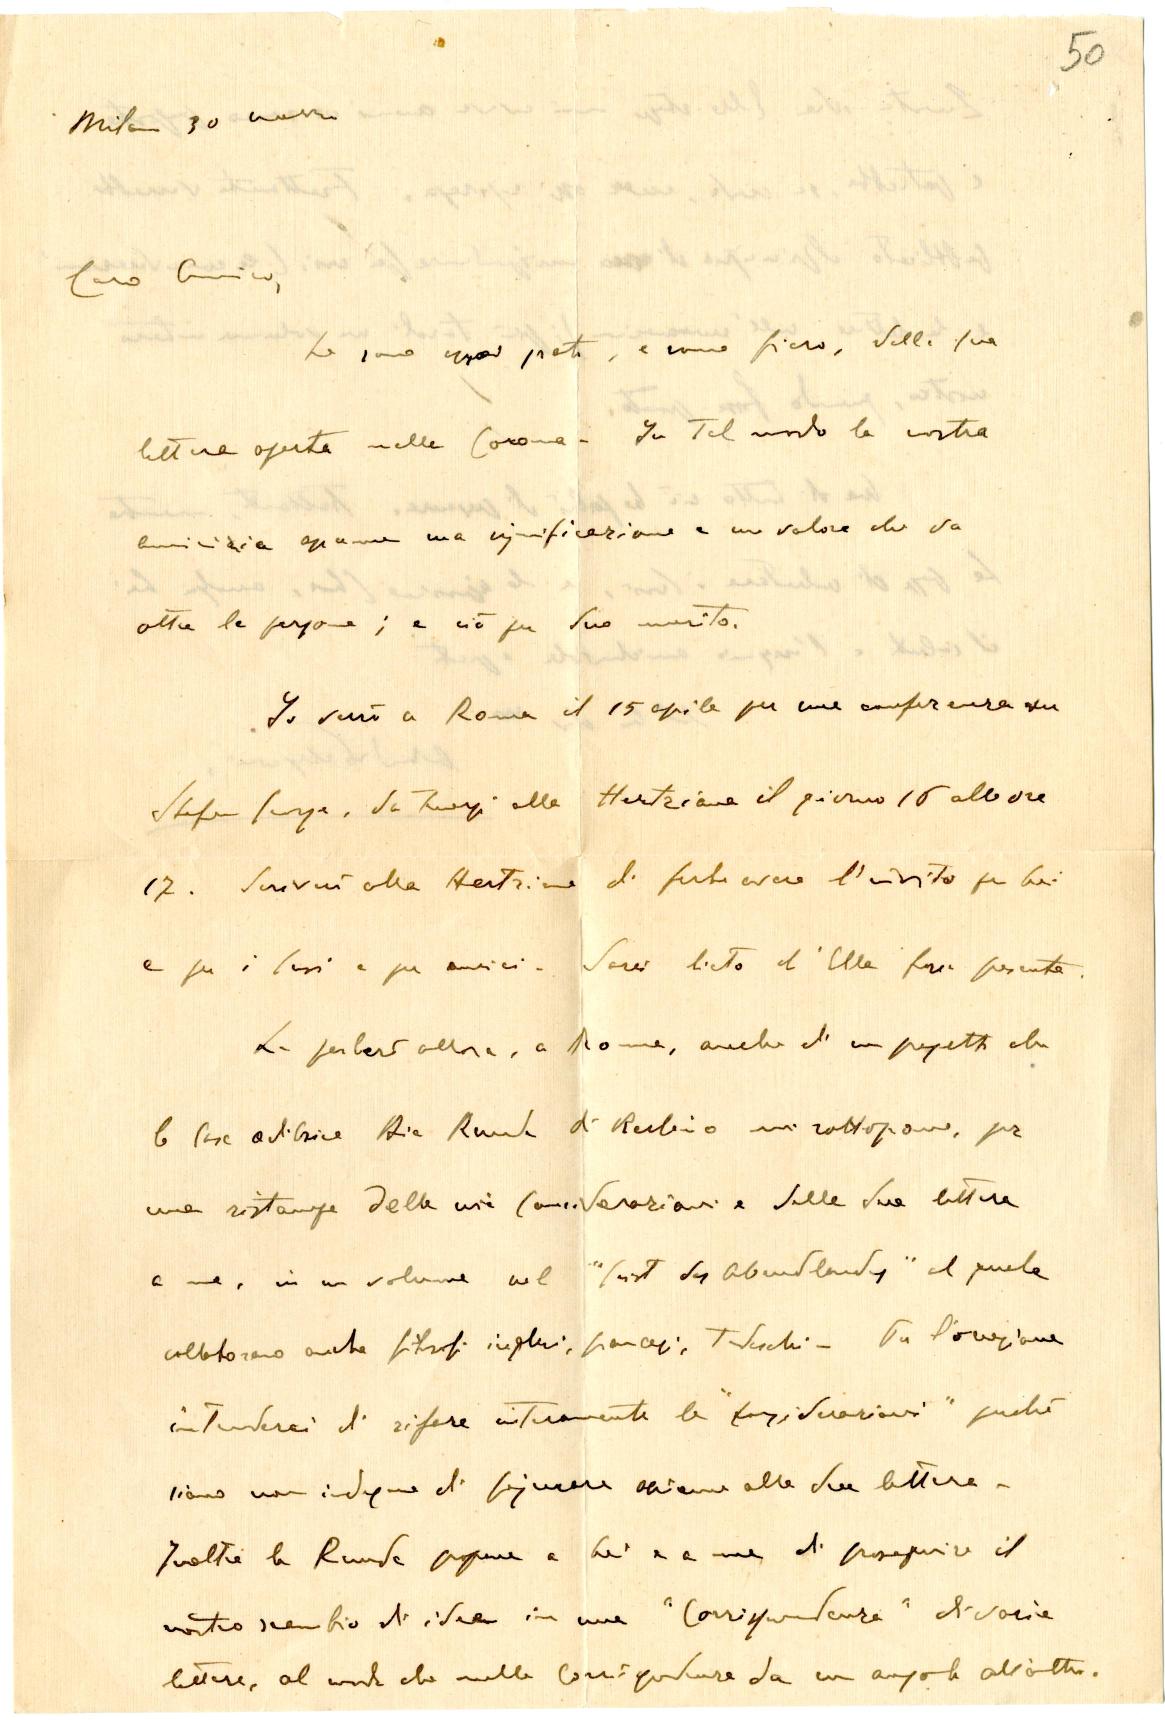 50
Milano 30 marzo
Caro Amico,
Le sono assai grato, e sono fiero, della Sua
lettera aperta nella Corona - In tal modo la nostra
amicizia assume una significazione e un valore che va
oltre le persone; e ciò per Suo merito.
Io sarò a Roma il 15 aprile per una conferenza su
Stefan George, da tenersi alla Hertziana il giorno 16 alle ore
17. Scriverò alla Hertziana di farle avere l'invito per Lei
e per i Suoi e per amici - Sarei lieto ch'Ella fosse presente.
Le parlerò allora, a Roma, anche di un progetto che
la Casa editrice Die Runde di Berlino mi sottopone, per
una ristampa delle mie Considerazioni e della Sua lettera
a me, in un volume sul "Geist des Abendlandes" al quale
collaborano anche filosofi inglesi, francesi, tedeschi - Per l'occasione
intenderei di rifare interamente le "Considerazioni" perché
siano non indegne di figurare assieme alla Sua lettera -
Inoltre la Runde propone a Lei e a me di proseguire il
nostro scambio di idee in una "Corrispondenza" di varie
lettere, al modo che nella Corrispondenza da un angolo all'altro.